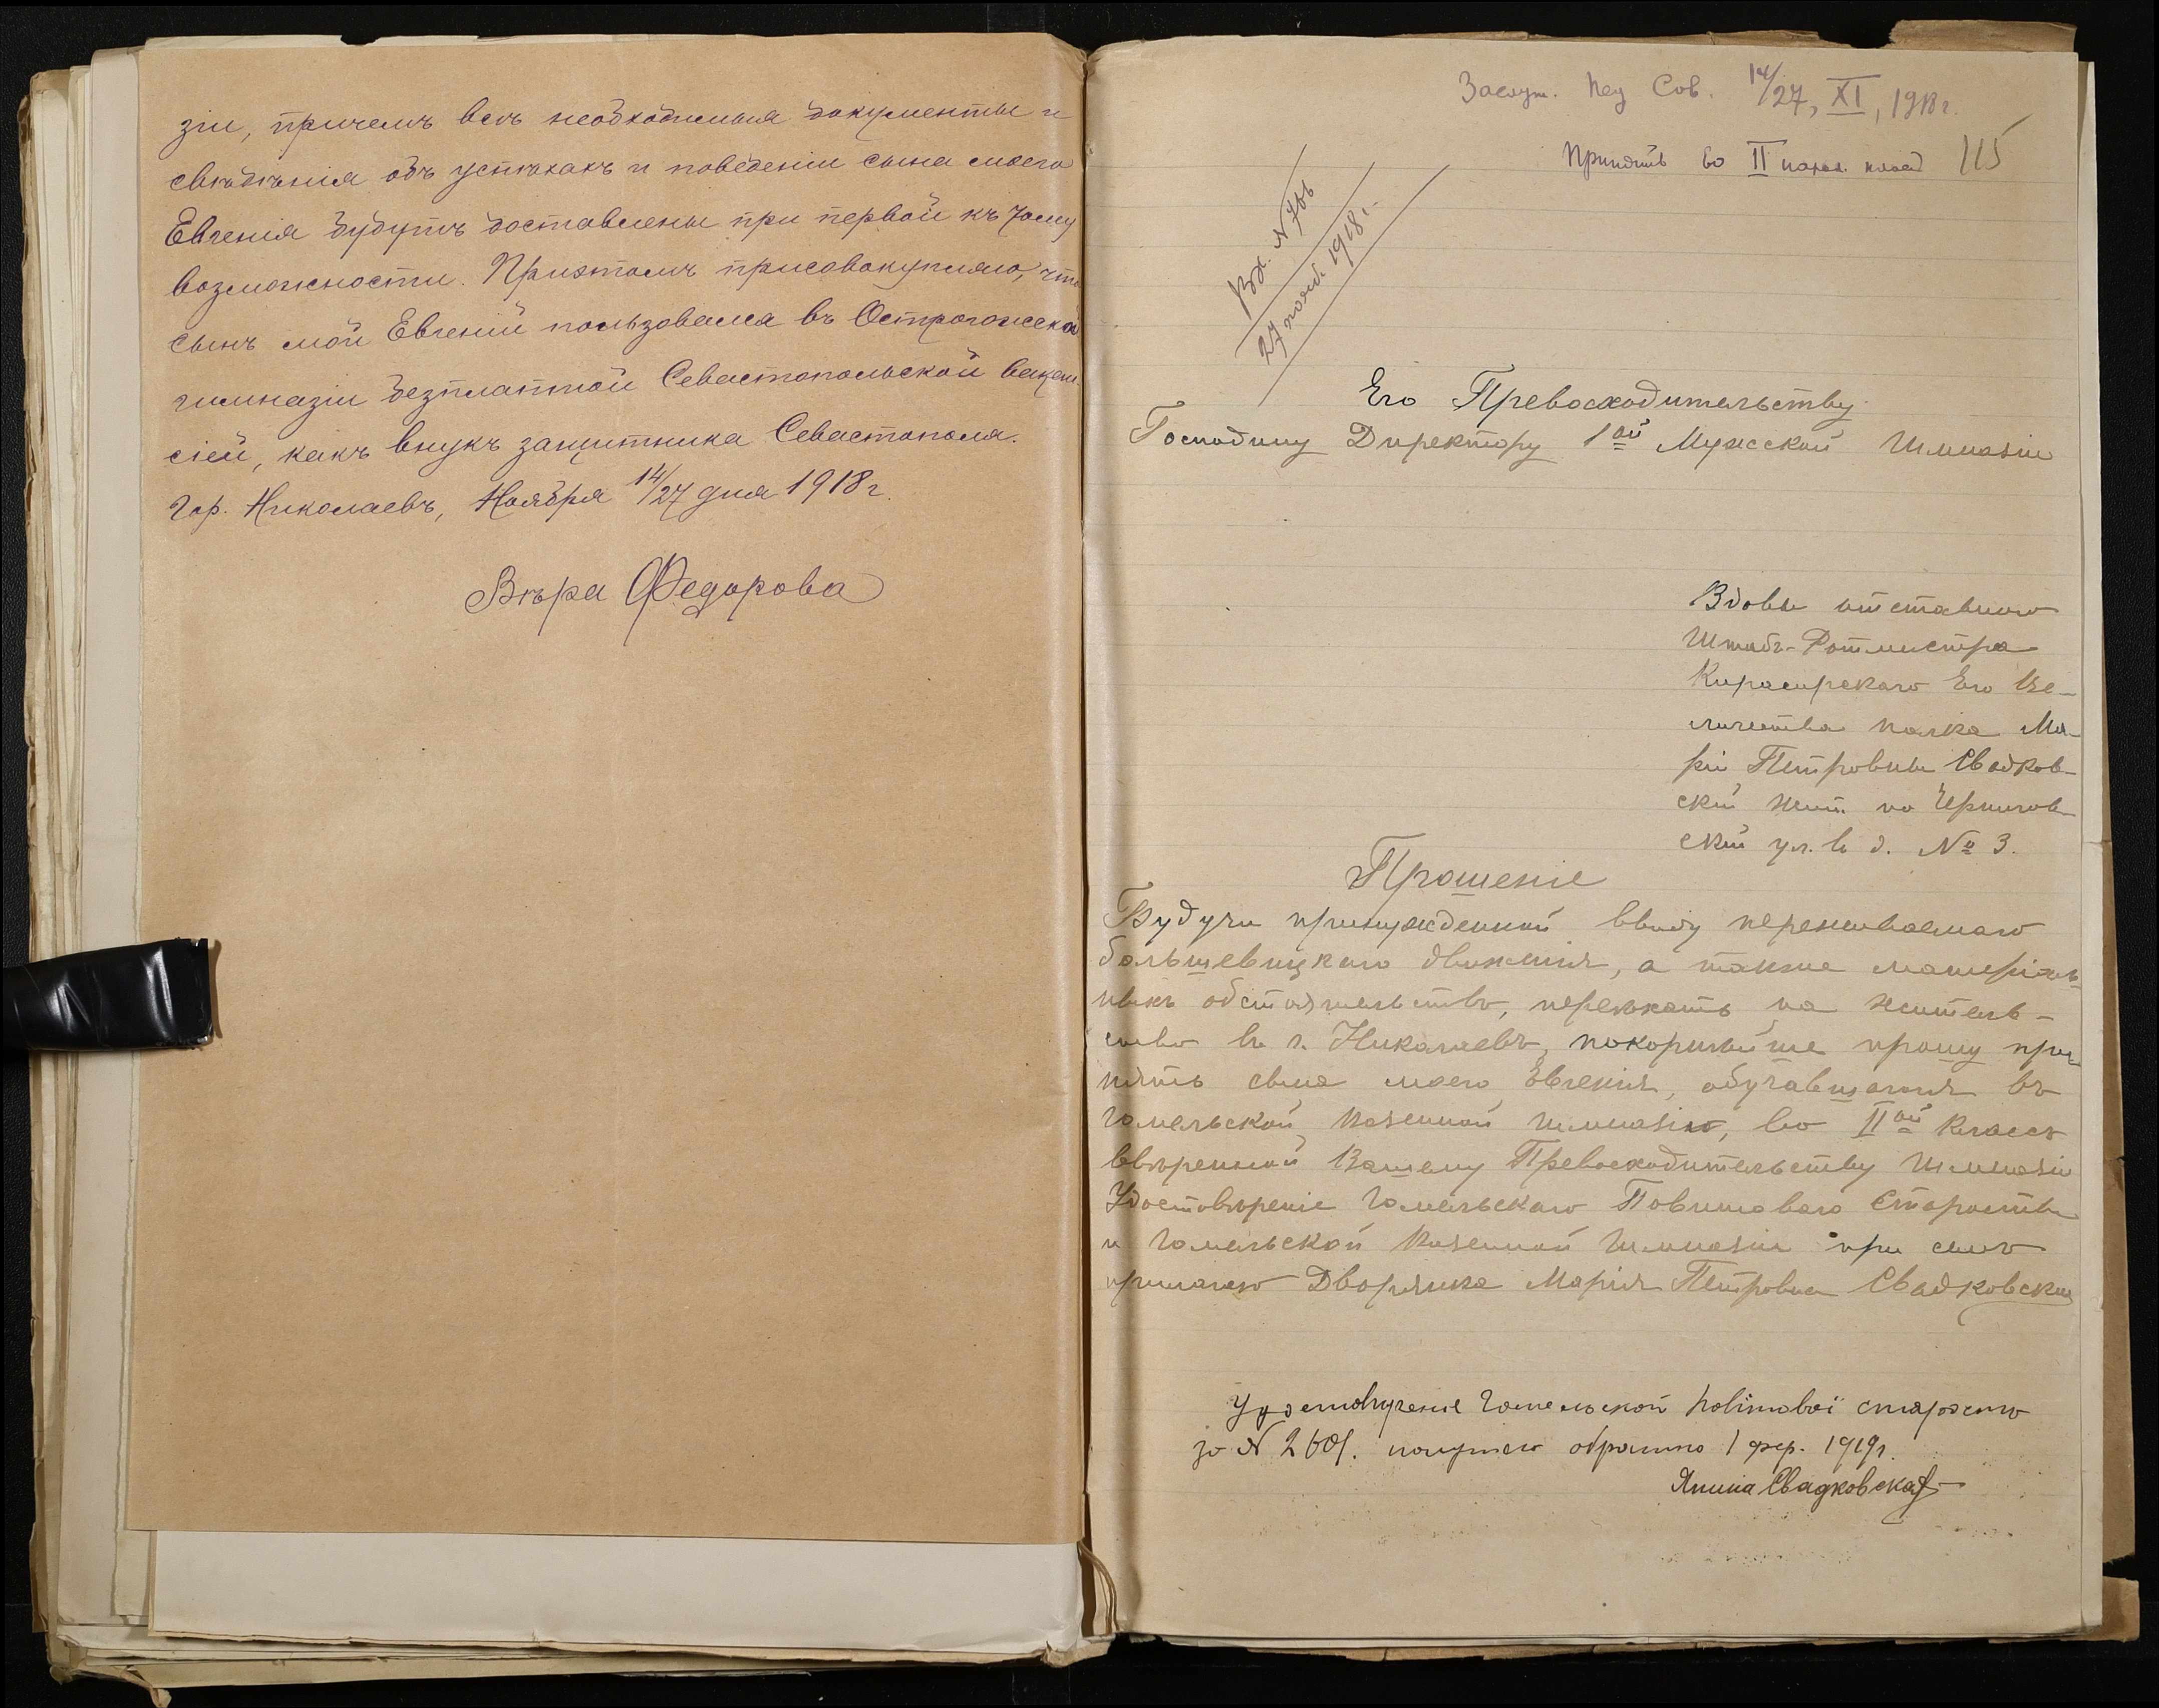 зіи, причемъ всѣ необходимыя документы и
свѣдѣнія объ успѣхахъ и поведеніи сына моего
Евгенія будутъ доставлены при первой къ тому
возможности. Приэтомъ присовокупляю, что
сынъ мой Евгеній пользовался въ Острогожской
гимназіи безплатной Севастопольской вакан-
сіей, какъ внукъ защитника Севастополя.
Гор. Николаевъ, Ноября 14/27 дня 1918 г.
Вѣра Федорова
Засѣд. Пед Сов. 14/27, XI, 1918 г.
Принять во II 115
Вх. N 786
27 нояб. 1918 г.
Его Превосходительству
Господину Директору 1ой Мужской Гимназіи
Вдовы отставного
Штабъ-Ротмистра
Кирасирскаго Его Ве-
личества полка Ма-
ріи Петровны Свадков-
ской жит. по Чернигов-
ской ул. в д. № 3.
Прошеніе
Будучи принужденной ввиду переживаемаго
большевицкаго движенія, а также матеріаль-
ныхъ обстоятельствъ, переѣхать на житель-
ство въ г. Николаевъ, покорнѣйше прошу при-
нять сына моего Евгенія, обучавшагося въ
Гомельской Казенной Гимназіи, во IIой классъ
ввѣренной Вашему Превосходительству Гимназіи
Удостовѣреніе Гомельскаго Повитоваго Староства
и Гомельской Казенной Гимназіи при семъ
прилагаю Дворянка Марія Петровна Свадковская
Удостовѣреніе Гомельской повітовоі староства
за N 2601. получено обратно 1 фер. 1919 г.
Янина Свадковская